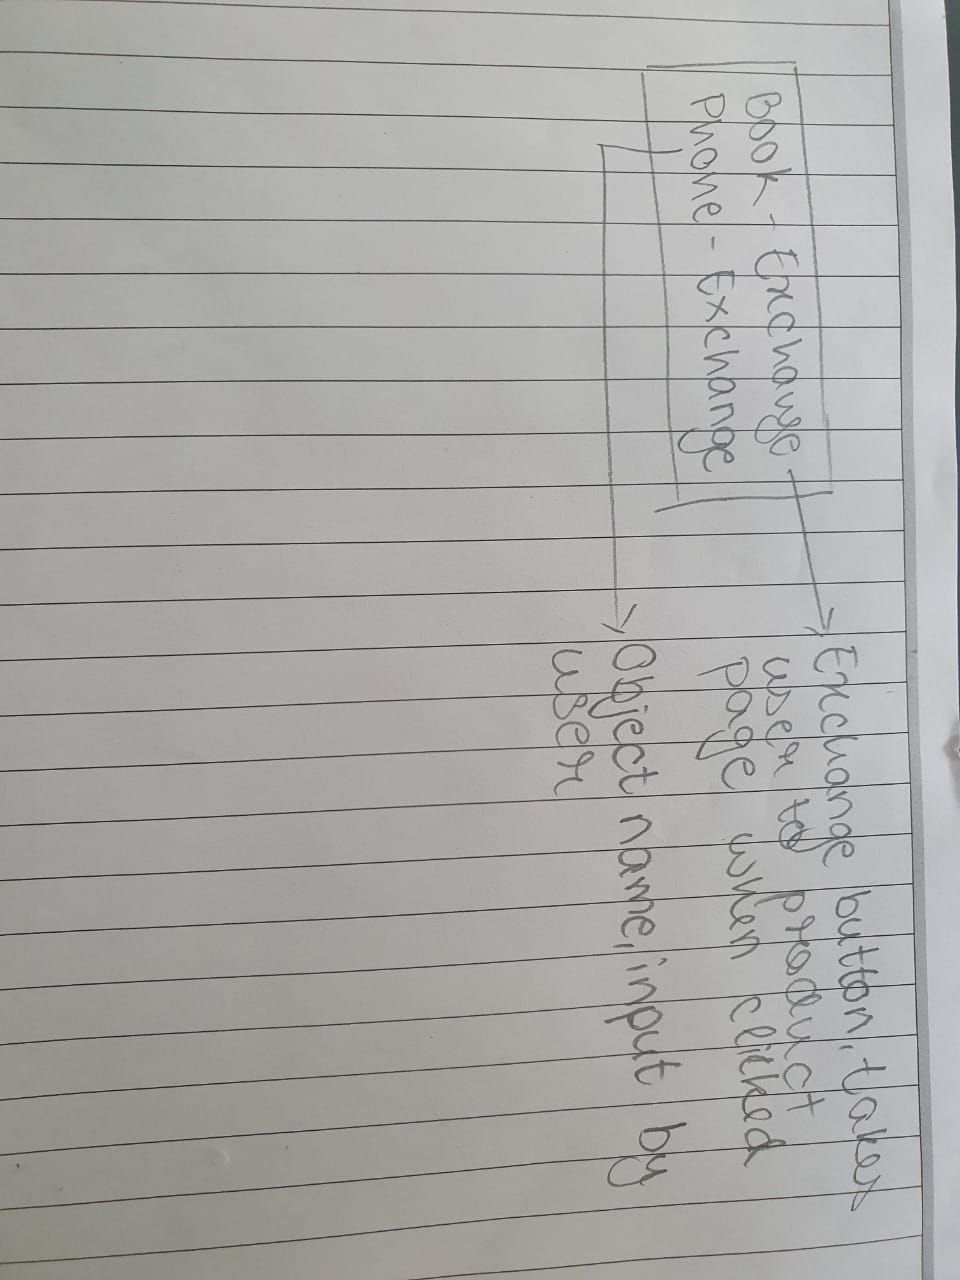 Book - Exchange
Phone - Exchange
Exchange button, takes
user to product
page when clicked
Object name, input by
user